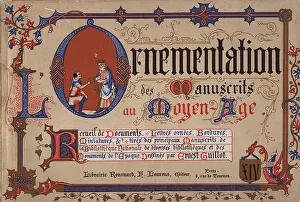 L'Ornementation
des Manuscrits
au Moyen-Age.
Recueil de Documents. - Lettres ornées, Bordures,
Miniatures, &c. tirés des principaux Manuscrits de
la Bibliothèque Nationale, de diverses bibliothèques et des
Monuments de l'Epoque Dessinés par Ernest Guillot.
Librairie Renouard, H. Laurens, Editeur.
Paris
6, rue de Tournon
XIV